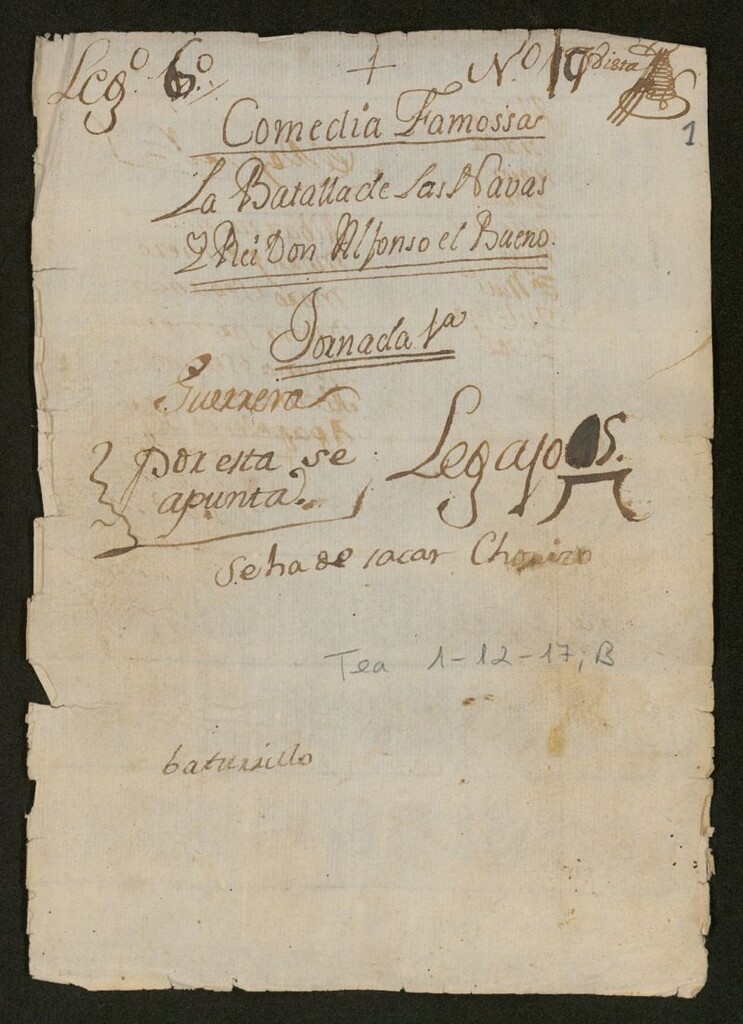 Legº. 6º.
+
Nº 17
Vista
1
Comedia Famossa
La Batalla de Las Navas
Y Rei Don Alfonso el Bueno.
Jornada 1ª
Guerrero
por esta se
apunta.
Legajo 5.
Se ha de sacar Chorizo
Tea 1-12-17, B
baturrillo